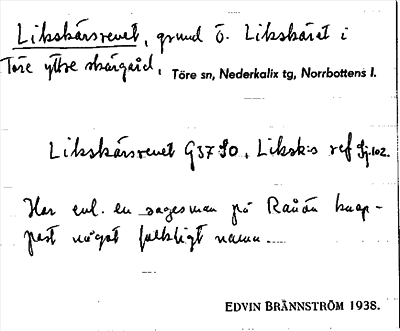 Likskärsrevet, grund ö. Likskäret i
Töre yttre skärgård, Töre sn, Nederkalix tg, Norrbottens l.
Likskärsrevet G37 SO, Liksk:s ref Sj.102.
Har enl. en sagesman på Rånön knap-
past något folkligt namn.
EDVIN BRÄNNSTRÖM 1938.